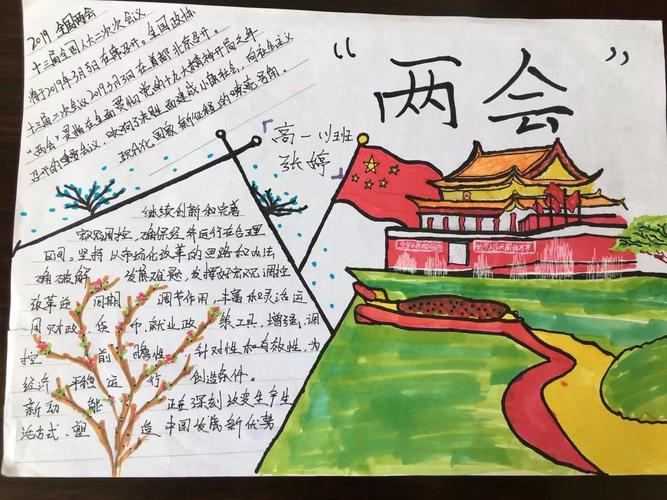 2019 全国两会
十三届全国人大二次会议
将于2019年3月5日在京召开。全国政协
十三届二次会议2019年3月3日在首都北京召开。
“两会”是指在全面贯彻党的十九大精神开局之年
召开的重要会议，吹响了决胜全面建成小康社会，向社会主义
现代化国家新征程的嘹亮号角。
“两会”
高一11班
张婷
继续创新和完善
宏观调控，确保经济运行在合理
区间，坚持以市场化改革的思路和办法
确破解 发展难题，发挥好宏观调控
改革 同期 调节作用，丰富和灵活运
用财政、货币、就业政策工具，增强调
控 前瞻性 针对性和有效性，为
经济平稳运行 创造条件。
新动能 正在深刻改变生产生
活方式、塑造中国发展新优势